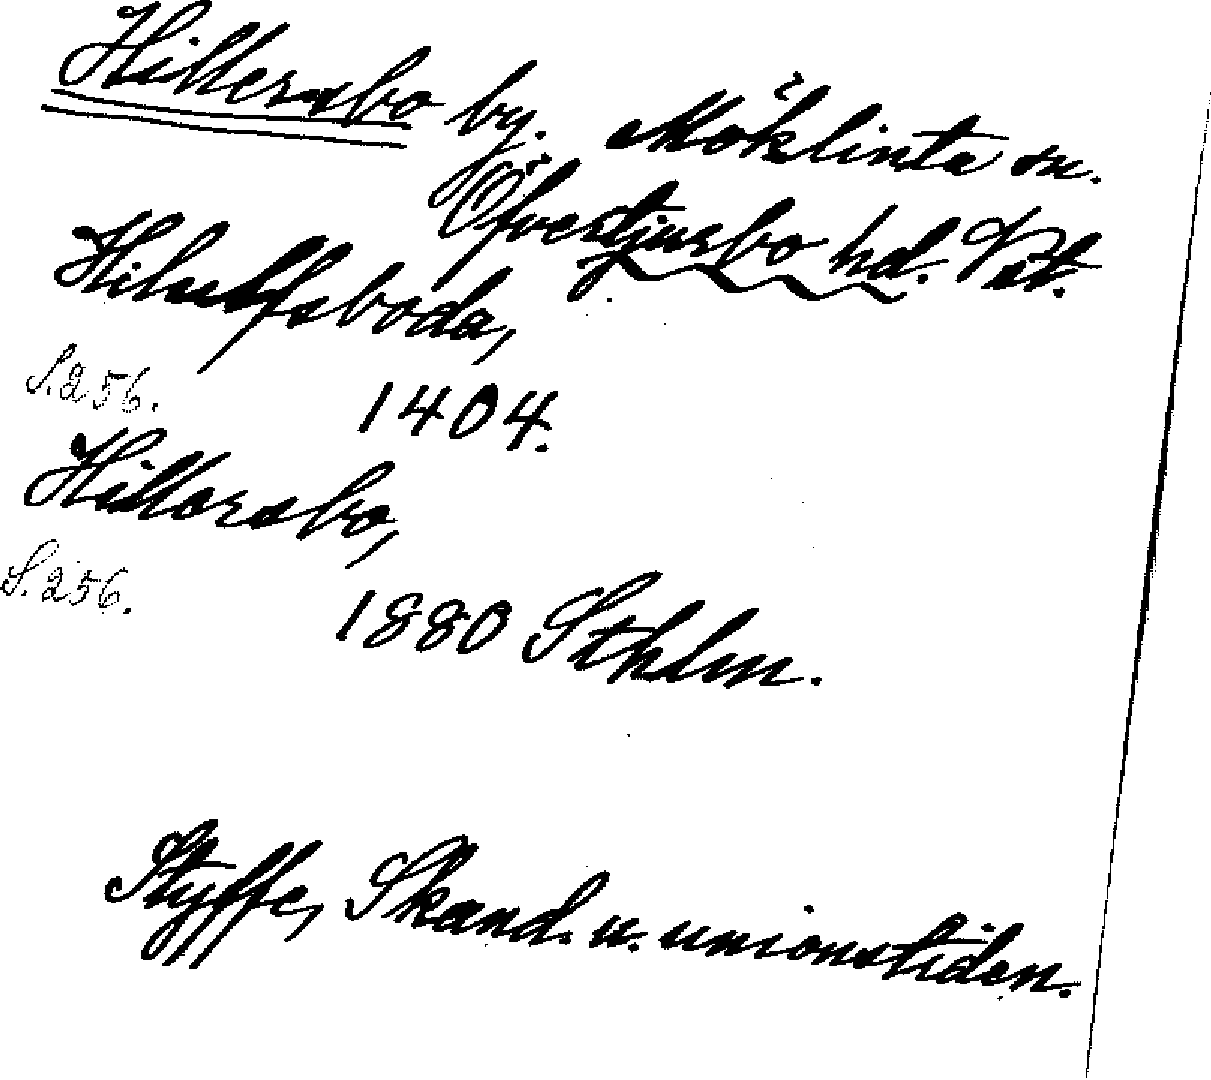 Hillersbo by. Möklinta sn.
Öfvertjursbo hd. Vstm.
Hilulfsboda,
S. 256. 1404.
Hillersbo,
S. 256. 1880 Sthlm.
Styffe, Skand. u. unionstiden.